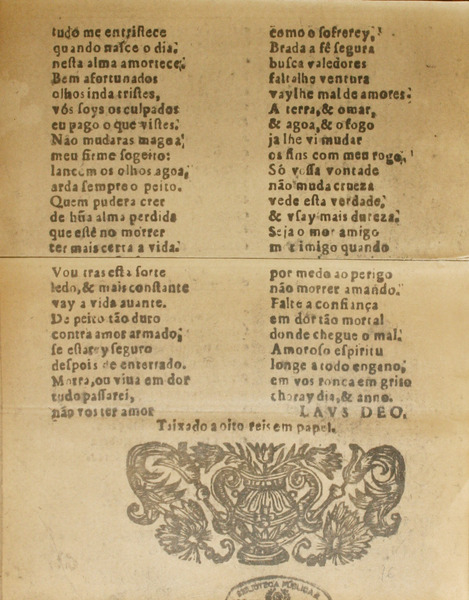 tudo me entristece
quando nasce o dia,
nesta alma amortece;
Bem afortunados
olhos inda tristes,
vòs soys os culpados
eu pago o que vistes.
Não mudaras magoa
meu firme sogeito:
lancem os olhos agoa,
arda sempre o peito.
Quem pudera crer
de hũa alma perdida
que estè no morrer
ter mais certa a vida.
Vou tras esta sorte
ledo, & mais constante
vay a vida auante.
De peito tão duro
contra amor armado,
se estarey seguro
despois de enterrado.
Morra, ou viua em dor
tudo passarei,
não vos ter amor
como o sofrerey.
Brada a fè segura
busca valedores
faltalhe ventura
vaylhe mal de amores.
A terra, & o mar,
& agoa, & o fogo
ja lhe vi mudar
os fins com meu rogo,
Só vossa vontade
não muda crueza
vede esta verdade,
& vsay mais dureza.
Seja o mor amigo
imigo quando
por medo ao perigo
não morrer amando.
Falte a confiança
em dór tão mortal
donde chegue o mal.
Amoroso espiritu
longe a todo engano,
em vos ronca em grito
choray dia, & anno.
LAVS DEO.
Taixado a oito reis em papel.
BIBLIOTECA PUBLICA